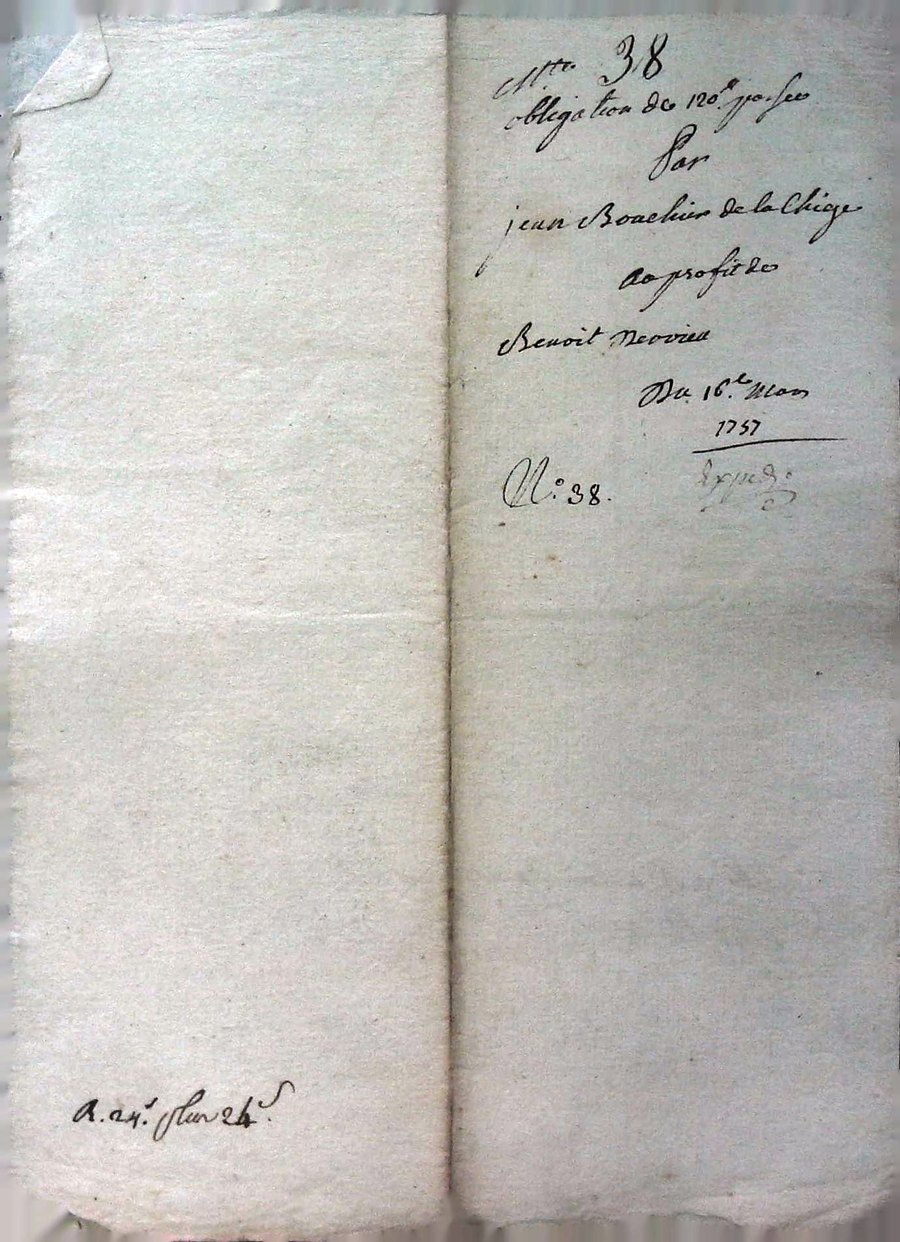 Mtte 38
obligation de 120# passée
Par
jean Bouchier de la Chige
au profit de
Benoit
Du 16e. Mars
1757
N.o 38.
Exped.
R. 24s. plus 24s.